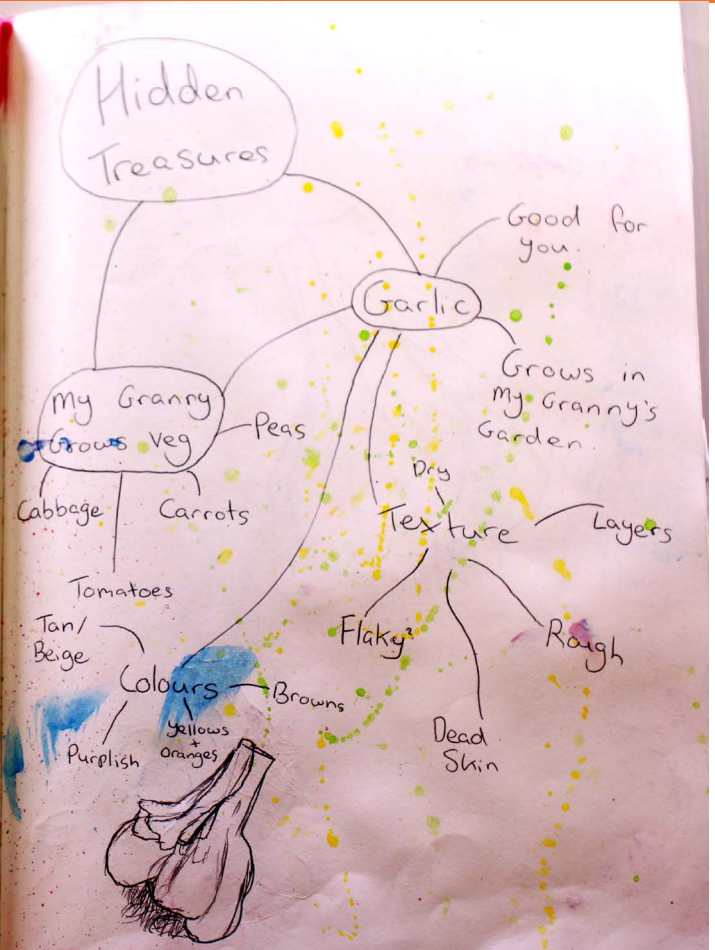 Hidden
Treasures
Good for
you.
Garlic
Grows in
My Granny's
Garden.
My Granny
Grows veg
Peas
Cabbage
Carrots
Tomatoes
Dry
Texture
Layers
Flaky?
Rough
Dead
Skin
Tan/
Beige
Colours
Browns
Purplish
Yellows
+
Oranges